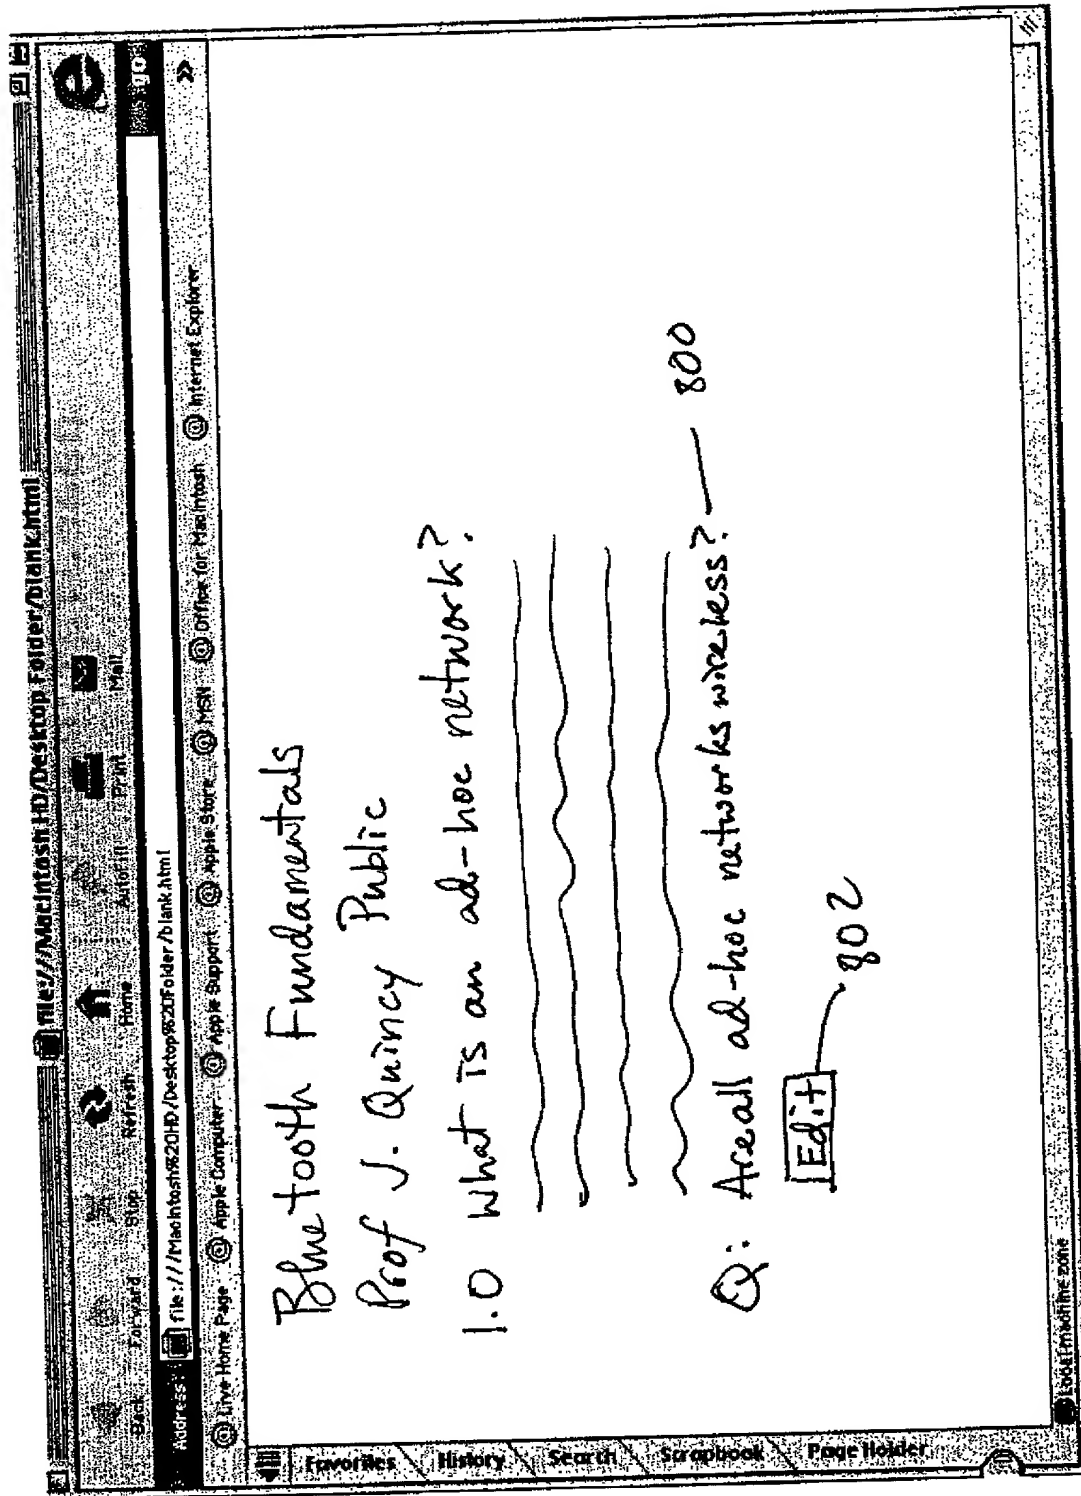 file:///Macintosh HD/Desktop Folder/blank.html
Back Forward Stop Refresh Home Autofill Print Mail
Address file:///Macintosh%20HD/Desktop%20Folder/blank.html go
Live Home Page Apple Computer Apple Support Apple Store MSN Office for Macintosh Internet Explorer »
Favorites
History
Search
Scrapbook
Page Holder
Bluetooth Fundamentals
Prof J. Quincy Public
1.0 What is an ad-hoc network?
Q: Are all ad-hoc networks wireless? 800
Edit 802
Local machine zone